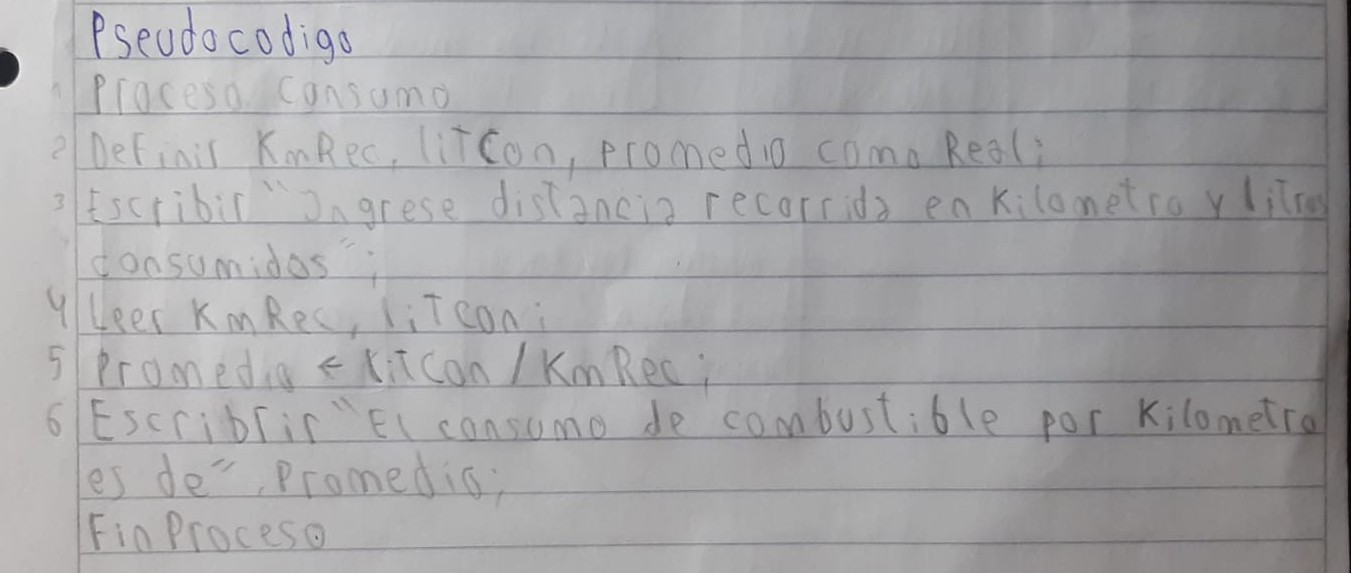 Pseudocodigo
1 Proceso Consumo
2 Definir KmRec, litCon, promedio como Real;
3 Escribir "Ingrese distancia recorrida en Kilometro y litros
consumidos";
4 Leer KmRec, litcon;
5 Promedio ← litCon / KmRec;
6 Escribrir "El consumo de combustible por Kilometro
es de", Promedio;
FinProceso